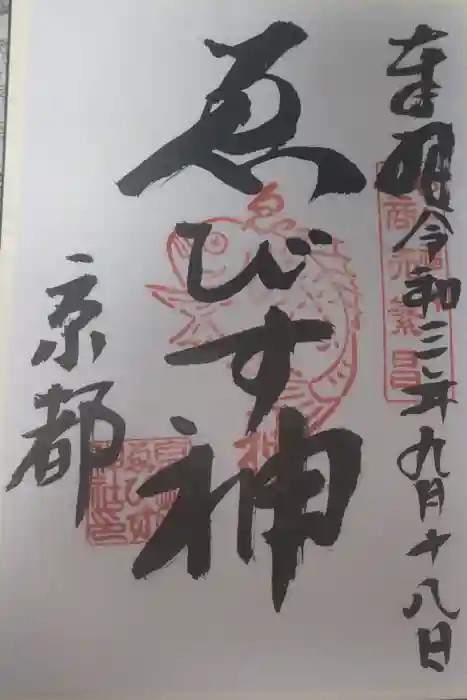 奉拝 令和三年九月十八日
商売繁昌
ゑびす神
ゑ
神
京都